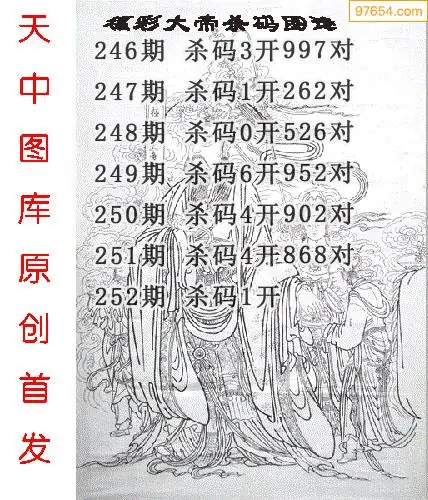 97654.com
福彩大帝杀码图选
246期 杀码3开997对
247期 杀码1开262对
248期 杀码0开526对
249期 杀码6开952对
250期 杀码4开902对
251期 杀码4开868对
252期 杀码1开
天中图库原创首发